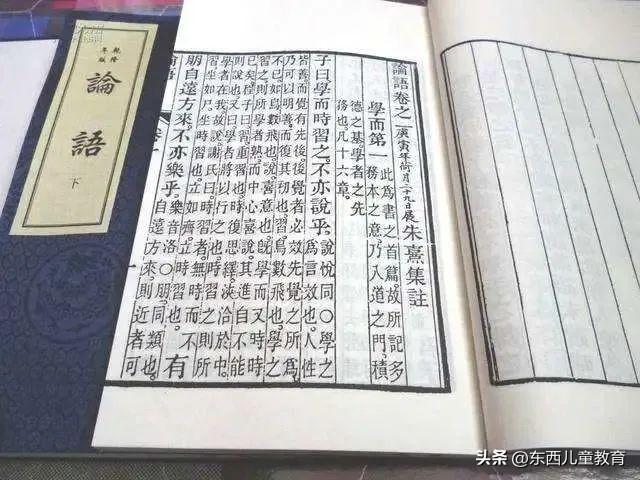 乾隆
年版
論語
下
論語卷之一 庚寅年荷月二十九日展 朱熹集註
學而第一 此為書之首篇。故所記多
務本之意。乃入道之門。積
德之基。學者之先
務也。凡十六章。
子曰。學而時習之。不亦說乎。說悅同〇學之
為言效也。人性
皆善。而覺有先後。後覺者必效先覺之所為。
乃可以明善而復其初也。習。鳥數飛也。學之
不已。如鳥數飛也。說。喜意也。既學而又時時
習之。則所學者熟。而中心喜說。其進自不能
已矣。程子曰。習。重習也。時復思繹。浹洽於中。
則說也。又曰。學者將以行之也。時習之。則所
學者在我。故說。謝氏曰。時習者。無時而不習。
坐如尸。坐時習也。立如齊。立時習也。有
朋自遠方來。不亦樂乎。樂音洛〇朋。同類也。
自遠方來。則近者可
头条 @东西儿童教育